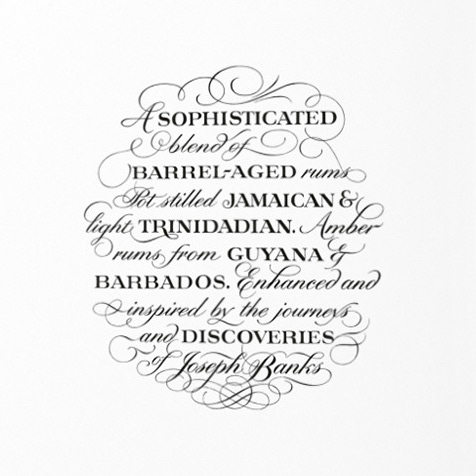 A SOPHISTICATED
blend of
BARREL-AGED rums
Pot stilled JAMAICAN &
light TRINIDADIAN. Amber
rums from GUYANA &
BARBADOS. Enhanced and
inspired by the journeys
and DISCOVERIES
of Joseph Banks